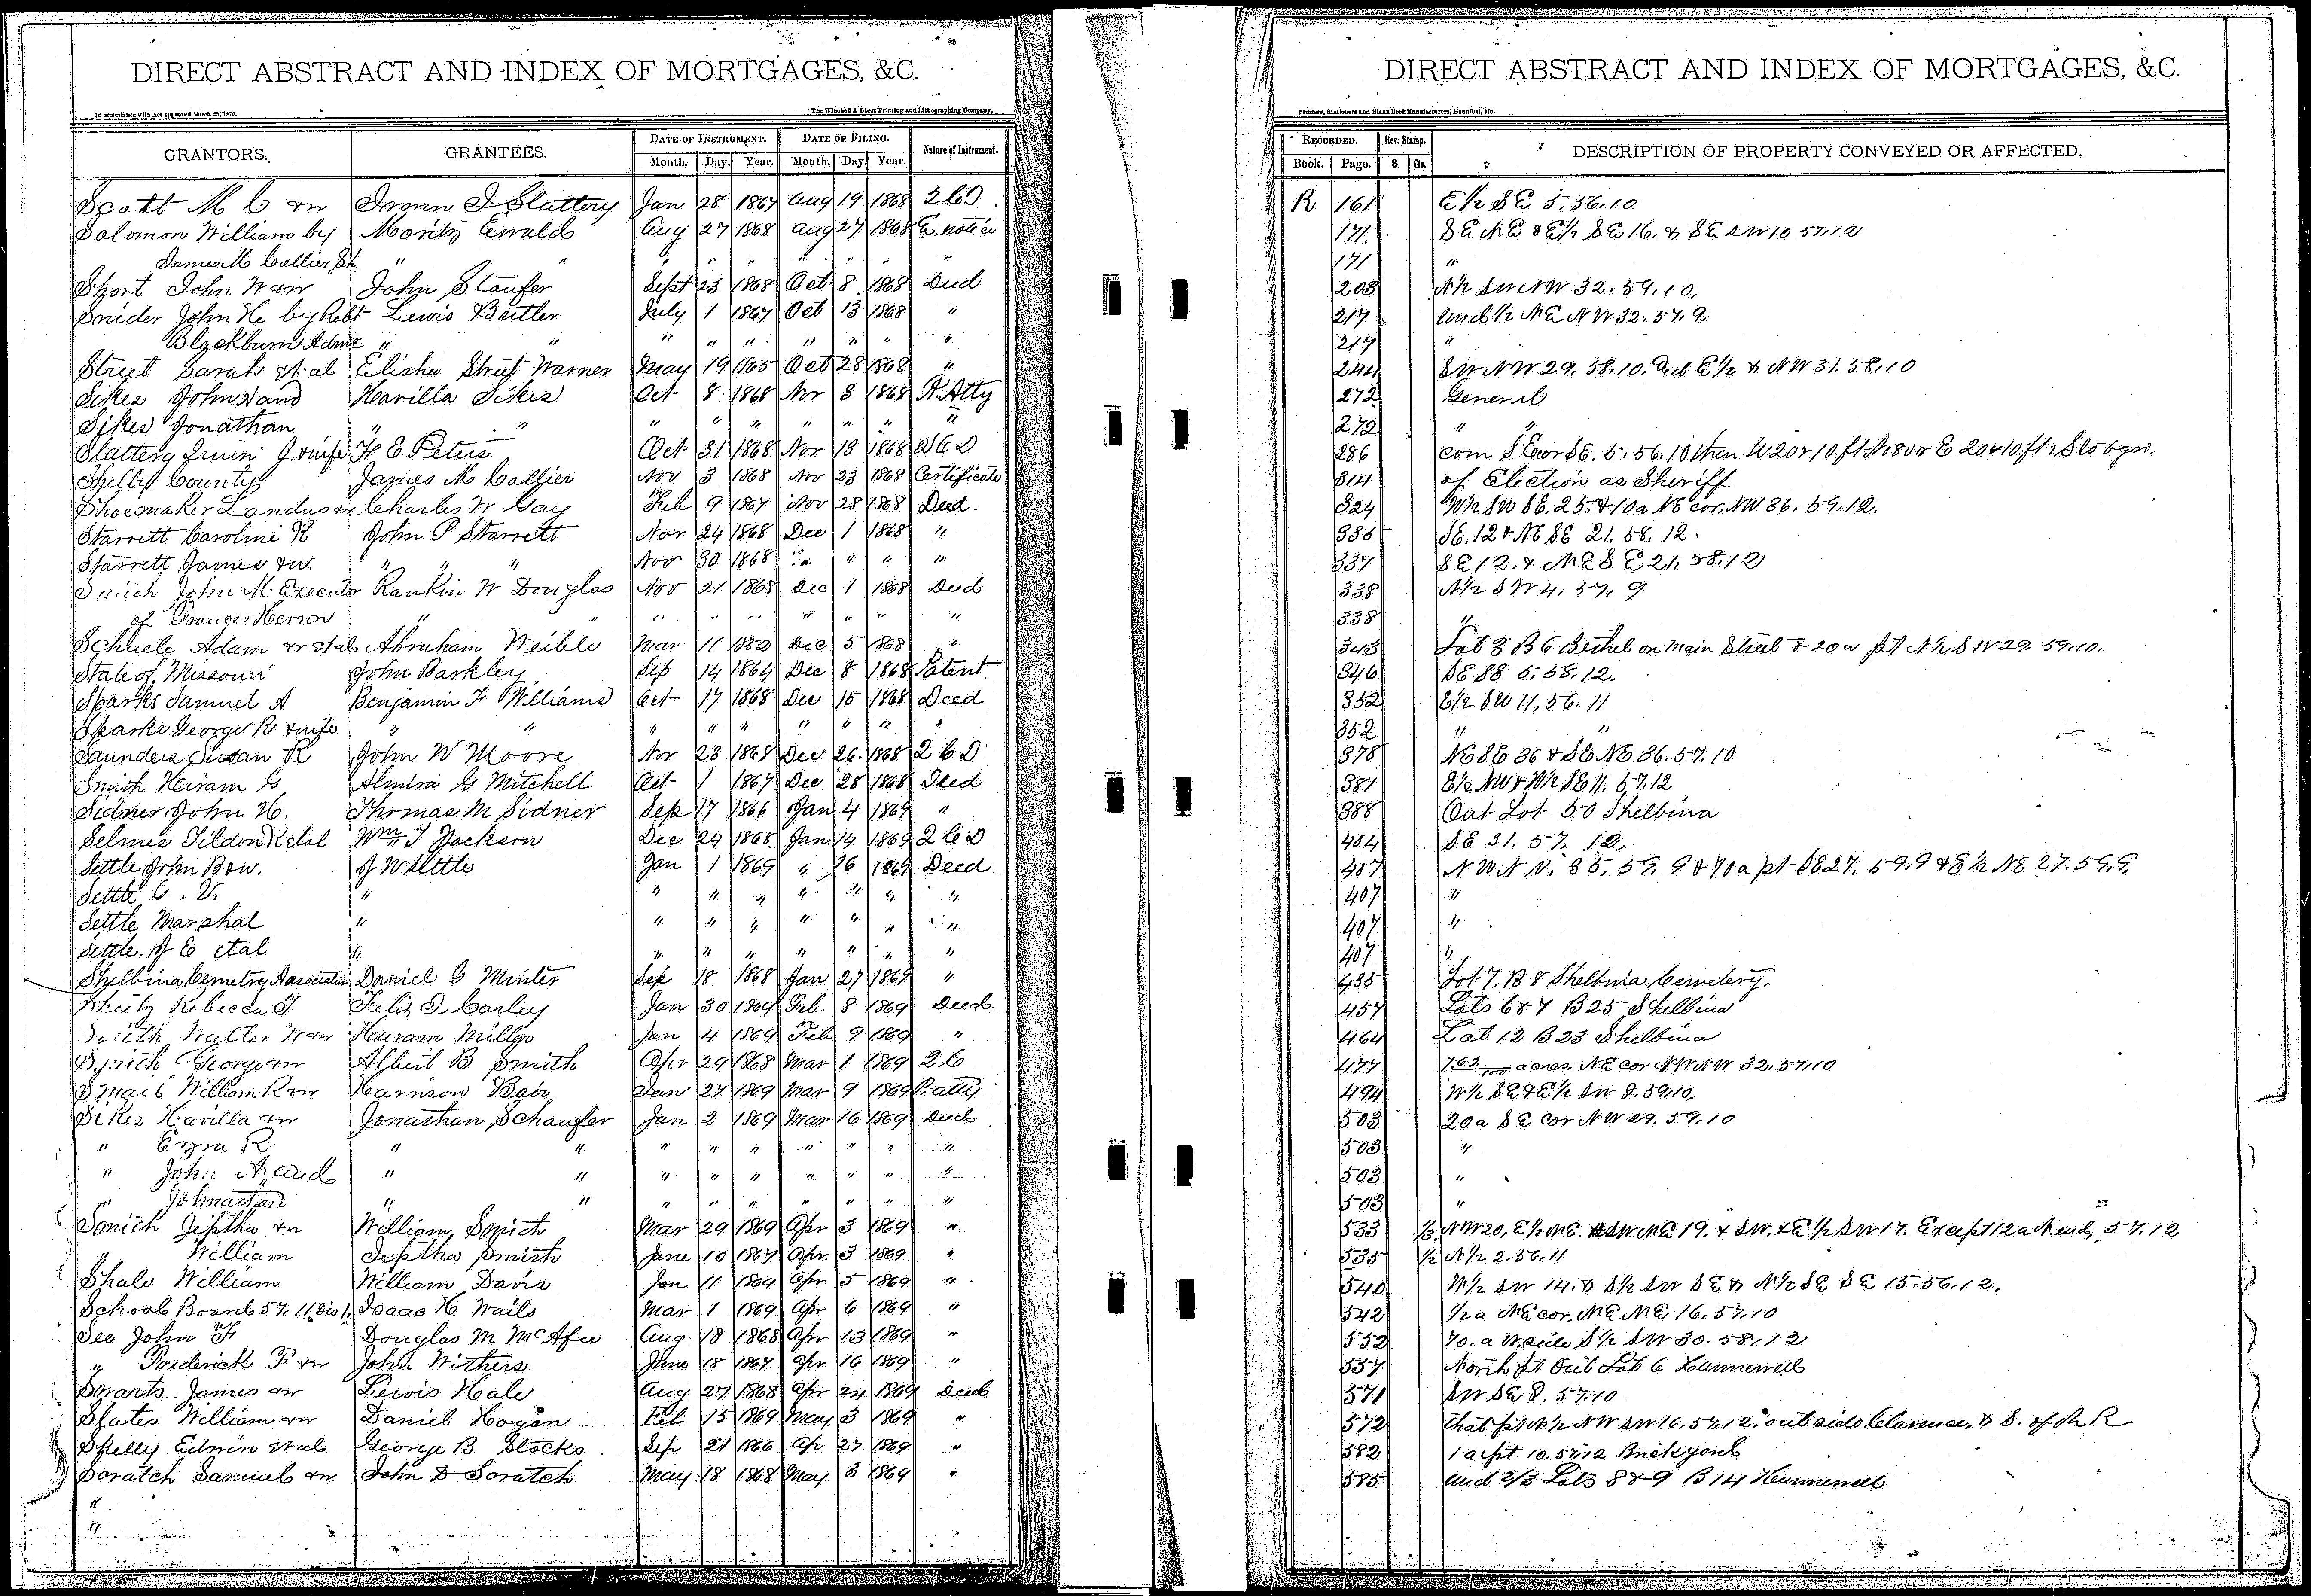 DIRECT ABSTRACT AND INDEX OF MORTGAGES, &C.
In accordance with Act approved March 25, 1870. The Winchell & Ebert Printing and Lithographing Company,
GRANTORS. GRANTEES. DATE OF INSTRUMENT. DATE OF FILING. Nature of Instrument.
Month. Day. Year. Month. Day. Year.
DIRECT ABSTRACT AND INDEX OF MORTGAGES, &C.
Printers, Stationers and Blank Book Manufacturers, Hannibal, Mo.
RECORDED. Rev. Stamp. DESCRIPTION OF PROPERTY CONVEYED OR AFFECTED.
Book. Page. $ Cts.
Scott M C & w Slattery Jan 28 1867 Aug 19 1868 2 C D R 161 E½ SE 5. 56. 10
Solomon William by Moritz Ewald Aug 27 1868 Aug 27 1868 notice 171 SE NE & E½ SE 16. & SE SW 10 57. 12
James M Collier Sh " " " " " " " " " 171 "
Short John W & w John Staufer Sept 23 1868 Oct 8 1868 Deed 203 N½ SW NW 32. 59. 10.
Snider John H by Robt Lewis Butler July 1 1867 Oct 13 1868 " 217 Und ½ NE NW 32. 57. 9.
Blackburn Adm " " " " " " " " " 217 "
Street Sarah et al Elisha Street Warner May 19 1865 Oct 28 1868 " 244 SW NW 29. 58. 10. E½ & NW 31. 58. 10
Sikes John Havilla Sikes Oct 8 1868 Nov 3 1868 P. Atty 272 General
Sikes Jonathan " " " " " " " " " 272 " "
Slattery J. & wife H E Peters Oct 31 1868 Nov 13 1868 2 C D 286 com S E cor SE. 5. 56. 10 then W 20 r 10 ft N 80 r E 20 r 10 ft S to bgn.
Shelby County James M Collier Nov 3 1868 Nov 23 1868 Certificate 314 of Election as Sheriff
Shoemaker Landus & w Charles W Gay Feb 9 1867 Nov 28 1868 Deed 324 W½ SW SE. 25. & 10a NE cor. NW 36. 59. 12.
Starrett Caroline K John P Starrett Nov 24 1868 Dec 1 1868 " 335 SE. 12 & NE SE 21. 58. 12.
Starrett James & w. " " " Nov 30 1868 " " " " 337 SE 12. & NE SE 21. 58. 12
Smith John M. Executor Rankin W Douglas Nov 21 1868 Dec 1 1868 Deed 338 N½ SW 4. 57. 9
of Frances Herron " " " " " " " " " 338 "
Schuele Adam & w et al Abraham Weible Mar 11 Dec 5 1868 " 343 Lot 3 B 6 Bethel on Main Street & 20 a pt N½ SW 29. 59. 10.
State of Missouri John Barkley Sep 14 1864 Dec 8 1868 Patent 346 5. 58. 12.
Sparks Samuel A Benjamin F Williams Oct 17 1868 Dec 15 1868 Deed 352 E½ SW 11. 56. 11
Sparks George R & wife " " " " " " " " " 352 " "
Saunders Susan R John W Moore Nov 23 1868 Dec 26 1868 2 C D 378 NE SE 36 & SE NE 36. 57. 10
Smith Hiram G Almira G Mitchell Oct 1 1867 Dec 28 1868 Deed 381 E½ NW & W½ SE 11. 57. 12
Sidner John H. Thomas M Sidner Sep 17 1866 Jan 4 1869 " 388 Out Lot 50 Shelbina
Selmes Tildon R et al Wm T Jackson Dec 24 1868 Jan 14 1869 2 C D 404 SE 31. 57. 12.
Settle John B & w. J W Settle Jan 1 1869 " 16 1869 Deed 407 35. 59. 9 & 70 a pt SE 27. 59. 9 & E½ NE 27. 59. 9.
Settle C. V. " " " " " " " " 407 "
Settle Marshal " " " " " " " " 407 "
Settle. J E et al " " " " " " " " 407 "
Shelbina Cemetry Association Daniel G Minter Sep 18 1868 Jan 27 1869 " 435 Lot 7. B 8 Shelbina Cemetery.
Rebecca J Carley Jan 30 1869 Feb 8 1869 Deed 457 Lots 6 & 7 B 25 Shelbina
Smith Walter W & w Hiram Miller Jan 4 1869 Feb 9 1869 " 464 Lot 12 B 23 Shelbina
Smith George & w Albert B Smith Apr 29 1868 Mar 1 1869 2 C 477 1 62/100 acres. NE cor NW NW 32. 57. 10
William R & w Harrison Bair Jan 27 1869 Mar 9 1869 P. atty 494 W½ SE & E½ SW 8. 59. 10.
Sikes Havilla & w Jonathan Schaufer Jan 2 1869 Mar 16 1869 Deed 503 20a SE cor NW 29. 59. 10
" Ezra R " " " " " " " " " 503 "
" John " " " " " " " " " 503 "
" Johnathan " " " " " " " " " 503 "
Smith Jeptha & w William Smith Mar 29 1869 Apr 3 1869 " 533 ½ NW 20, E½ NE. SW NE 19. & SW. & E½ SW 17. Except 12 a N end, 57. 12
" William Jeptha Smith June 10 1867 Apr. 3 1869 " 535 ½ N½ 2. 56. 11
Shale William William Davis Jan 11 1869 Apr 5 1869 " 540 W½ SW 14. & S½ SW SE & N½ SE SE 15. 56. 12.
School Board 57. 11 Dis 1. Isaac H Wails Mar 1 1869 Apr 6 1869 " 542 ½ a NE cor. NE NE 16. 57. 10
See John F Douglas M McAfee Aug. 18 1868 Apr 13 1869 " 552 70. a N. side S½ SW 30. 58. 12
" Frederick F & w John Withers June 18 1867 Apr 16 1869 " 557 North pt Out Lot 6 Hunnewell
Swarts James & w Lewis Hale Aug 27 1868 Apr 24 1869 Deed 571 SW SE 8. 57. 10
States William & w Daniel Hogan Feb 15 1869 May 3 1869 " 572 that pt N½ NW SW 16. 57. 12. outside Clarence. & S. of R R
Skelly Edwin et al George B Stocks Sep 21 1866 Ap 27 1869 " 582 1 a pt 10. 57. 12 Brickyard
Soratch Samuel & w John D Soratch May 18 1868 May 3 1869 " 585 und 2/3 Lots 8 & 9 B 14 Hunnewell
"
"